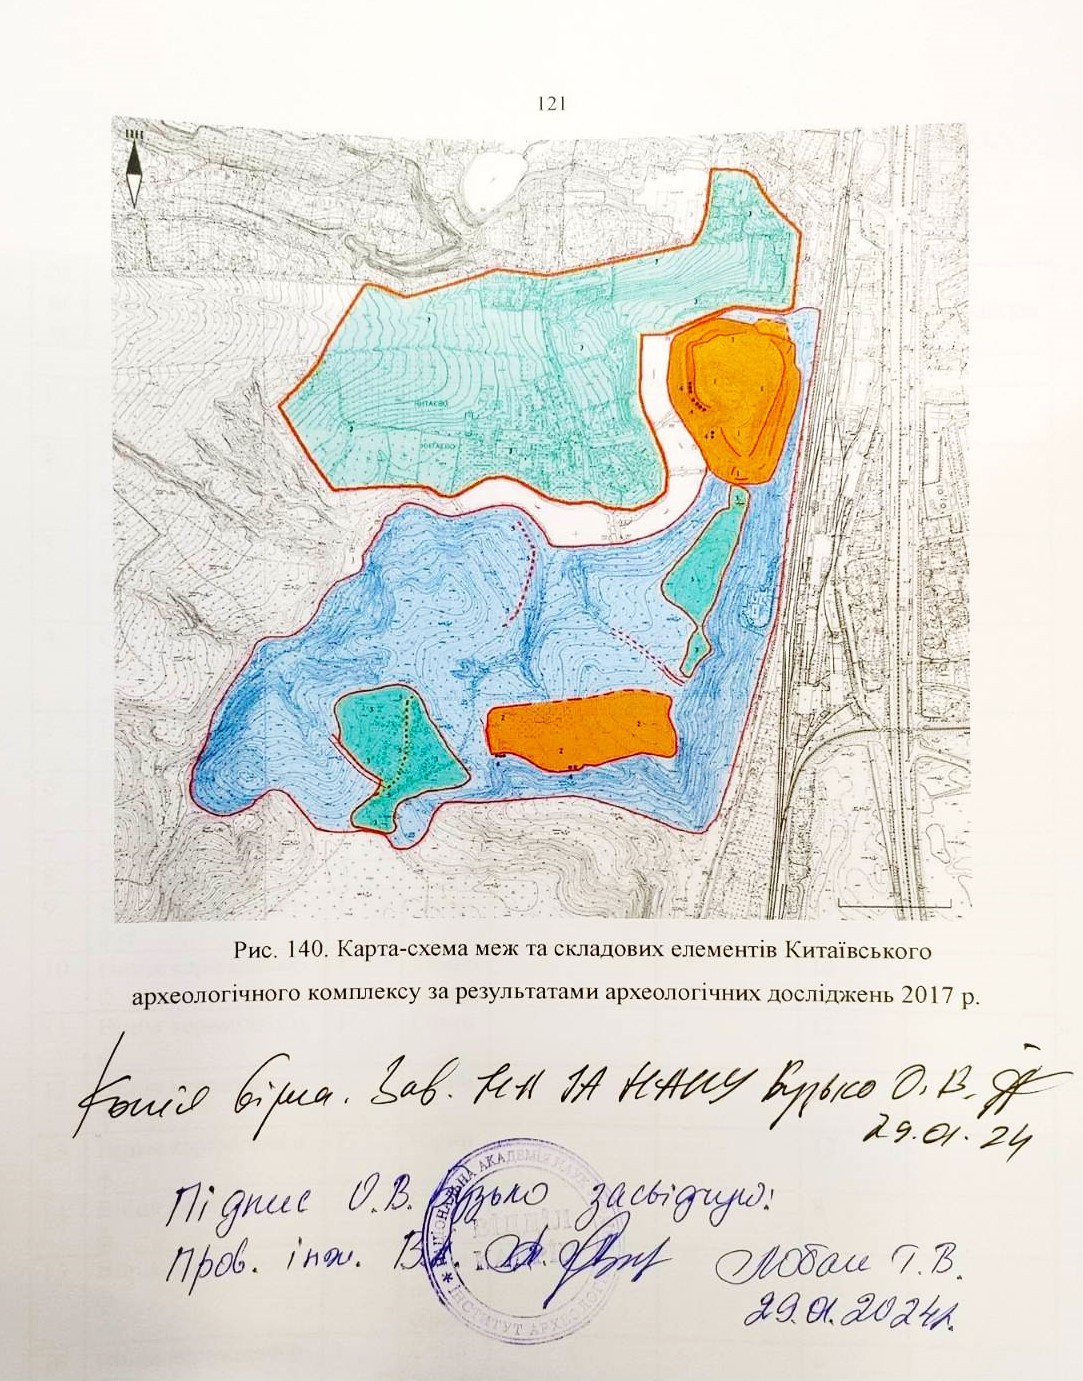 121
ПН
КИТАЕВО
КИТАЕВО
Рис. 140. Карта-схема меж та складових елементів Китаївського
археологічного комплексу за результатами археологічних досліджень 2017 р.
Копія вірна. Зав. НА ІА НАНУ Бузько О.В.
29.01.24
Підпис О.В. Бузько засвідчую:
Пров. інж. ВК
Лобан Т.В.
29.01.2024р.
НАЦІОНАЛЬНА АКАДЕМІЯ НАУК
ВІДДІЛ
ІНСТИТУТ АРХЕОЛОГІЇ